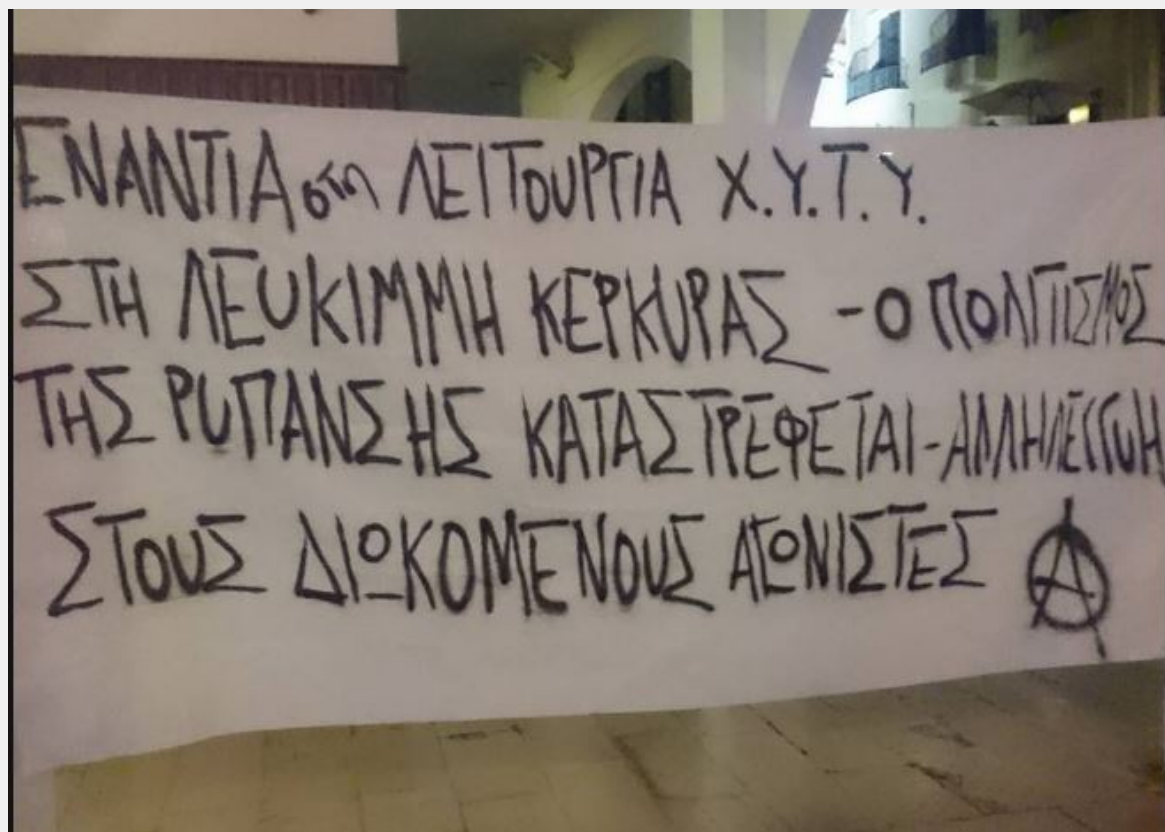 ΕΝΑΝΤΙΑ στη ΛΕΙΤΟΥΡΓΙΑ Χ.Υ.Τ.Υ.
ΣΤΗ ΛΕΥΚΙΜΜΗ ΚΕΡΚΥΡΑΣ - Ο ΠΟΛΙΤΙΣΜΟΣ
ΤΗΣ ΡΥΠΑΝΣΗΣ ΚΑΤΑΣΤΡΕΦΕΤΑΙ - ΑΛΛΗΛΕΓΓΥΗ
ΣΤΟΥΣ ΔΙΩΚΟΜΕΝΟΥΣ ΑΓΩΝΙΣΤΕΣ Ⓐ